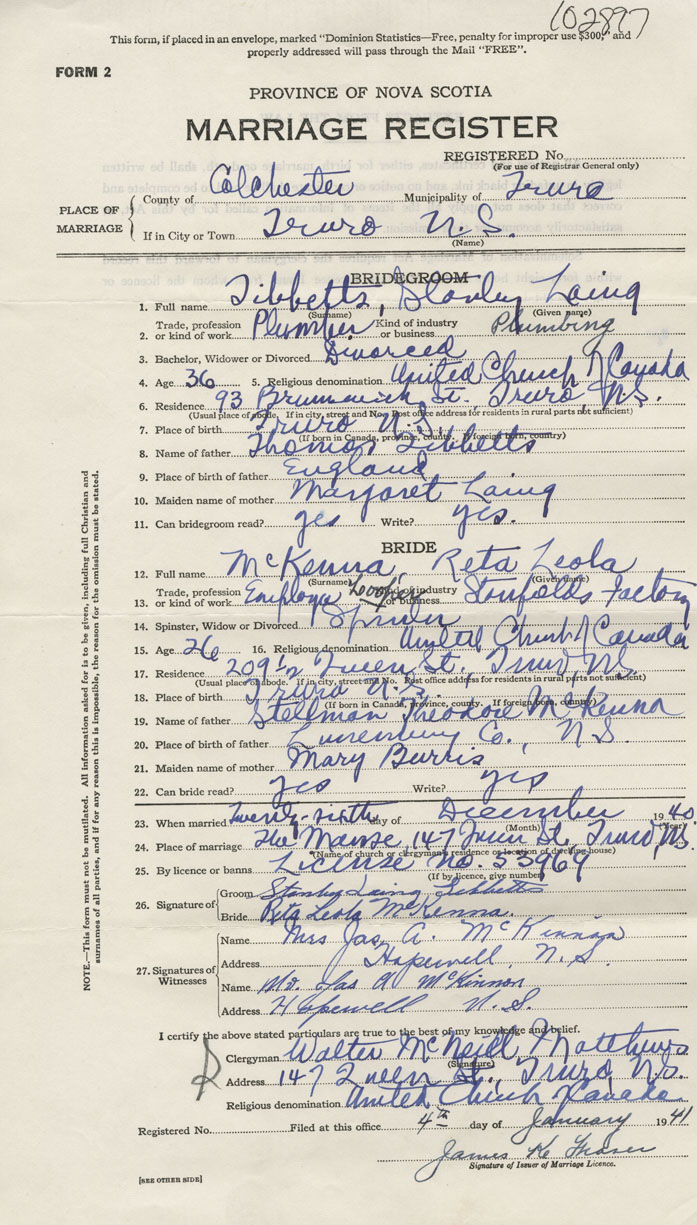 102897
This form, if placed in an envelope, marked "Dominion Statistics—Free, penalty for improper use $300," and
properly addressed will pass through the Mail "FREE".
FORM 2
PROVINCE OF NOVA SCOTIA
MARRIAGE REGISTER
REGISTERED No.
(For use of Registrar General only)
PLACE OF MARRIAGE
County of Colchester Municipality of Truro
If in City or Town Truro N.S.
(Name)
BRIDEGROOM
1. Full name Tibbetts, Stanley Laing
(Surname) (Given name)
2. Trade, profession or kind of work Plumber Kind of industry or business Plumbing
3. Bachelor, Widower or Divorced Divorced
4. Age 36 5. Religious denomination United Church of Canada
6. Residence 93 Brunswick St. Truro, N.S.
(Usual place of abode. If in city, street and No. Post office address for residents in rural parts not sufficient)
7. Place of birth Truro N.S.
(If born in Canada, province, county. If foreign born, country)
8. Name of father Thomas Tibbetts
9. Place of birth of father England
10. Maiden name of mother Margaret Laing
11. Can bridegroom read? yes Write? yes.
BRIDE
12. Full name McKenna Reta Leola
(Surname) (Given name)
13. Trade, profession or kind of work Employee Kind of industry or business Stanfields Factory
14. Spinster, Widow or Divorced Spinster
15. Age 26 16. Religious denomination United Church of Canada
17. Residence 209 1/2 Queen St., Truro N.S.
(Usual place of abode. If in city, street and No. Post office address for residents in rural parts not sufficient)
18. Place of birth Truro N.S.
(If born in Canada, province, county. If foreign born, country)
19. Name of father Stellman Theodore McKenna
20. Place of birth of father Lunenburg Co., N.S.
21. Maiden name of mother Mary Burris
22. Can bride read? yes Write? yes
23. When married Twenty-sixth day of December 1940.
(Month) (Year)
24. Place of marriage The Manse, 147 Queen St. Truro, N.S.
(Name of church or clergyman's residence or location of dwelling-house)
25. By licence or banns License No. 53969
(If by licence, give number)
26. Signature of
Groom Stanley Laing Tibbetts
Bride Reta Leola McKenna.
27. Signatures of Witnesses
Name Mrs Jas. A. McKinnon
Address Hopewell, N.S.
Name Mr. Jas A McKinnon
Address Hopewell N.S.
I certify the above stated particulars are true to the best of my knowledge and belief.
Clergyman Walter McNeill Matthews
(Signature)
Address 147 Queen St., Truro, N.S.
Religious denomination United Church Canada
Registered No. Filed at this office 4th day of January 1941
James K Fraser
Signature of Issuer of Marriage Licence.
[SEE OTHER SIDE]
NOTE.—This form must not be mutilated. All information asked for is to be given, including full Christian and
surnames of all parties, and if for any reason this is impossible, the reason for the omission must be stated.